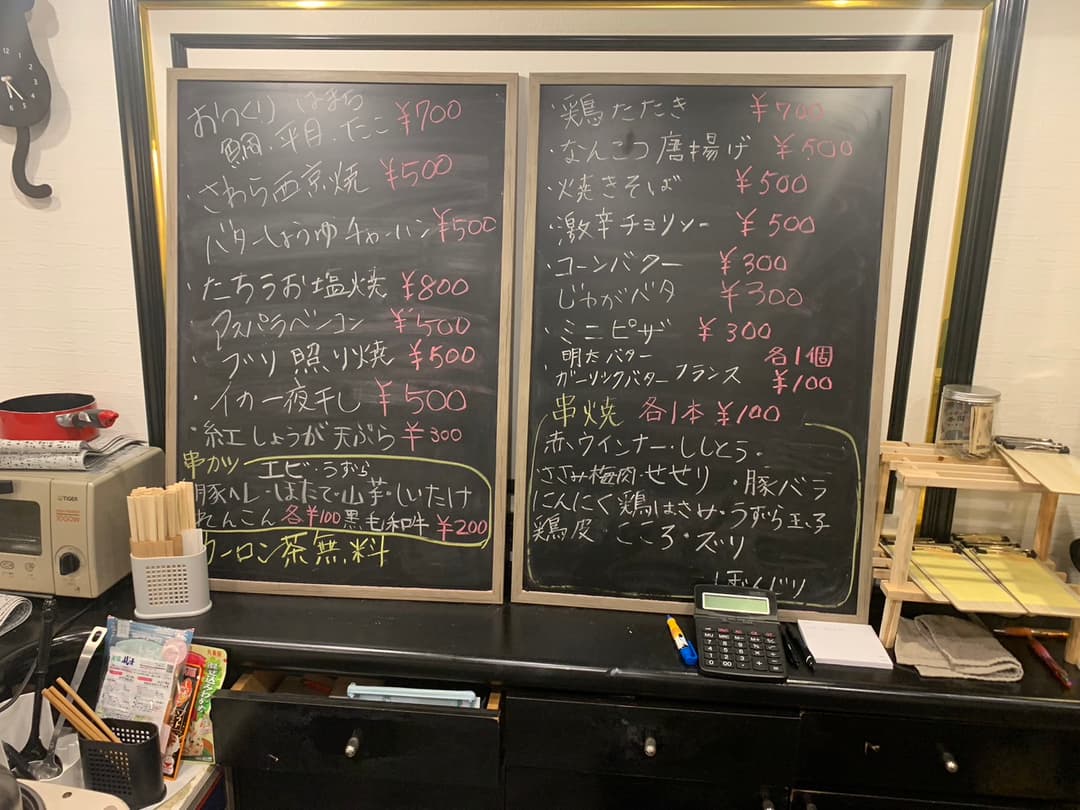 おつくり はまち ¥700
鯛・平目・たこ
・さわら西京焼 ¥500
バターしょうゆチャーハン ¥500
・たちうお塩焼 ¥800
アスパラベーコン ¥500
・ブリ照り焼 ¥500
・イカ一夜干し ¥500
・紅しょうが天ぷら ¥300
串カツ エビ・うずら
豚ヘレ・ほたて・山芋・しいたけ
れんこん 各¥100 黒毛和牛 ¥200
ウーロン茶無料
・鶏たたき ¥700
・なんこつ唐揚げ ¥500
・焼きそば ¥500
・激辛チョリソー ¥500
・コーンバター ¥300
じゃがバタ ¥300
・ミニピザ ¥300
明太バター 各1個
ガーリックバターフランス ¥100
串焼 各1本 ¥100
赤ウインナー・ししとう・
ささみ梅肉・せせり・豚バラ
にんにく鶏はさみ・うずら玉子
鶏皮・こころ・ズリ
ぼんじり
TIGER
1000W